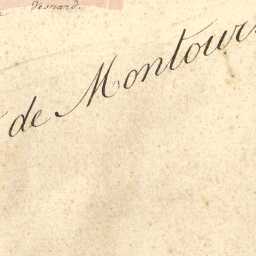 Vesnard.
de Montour